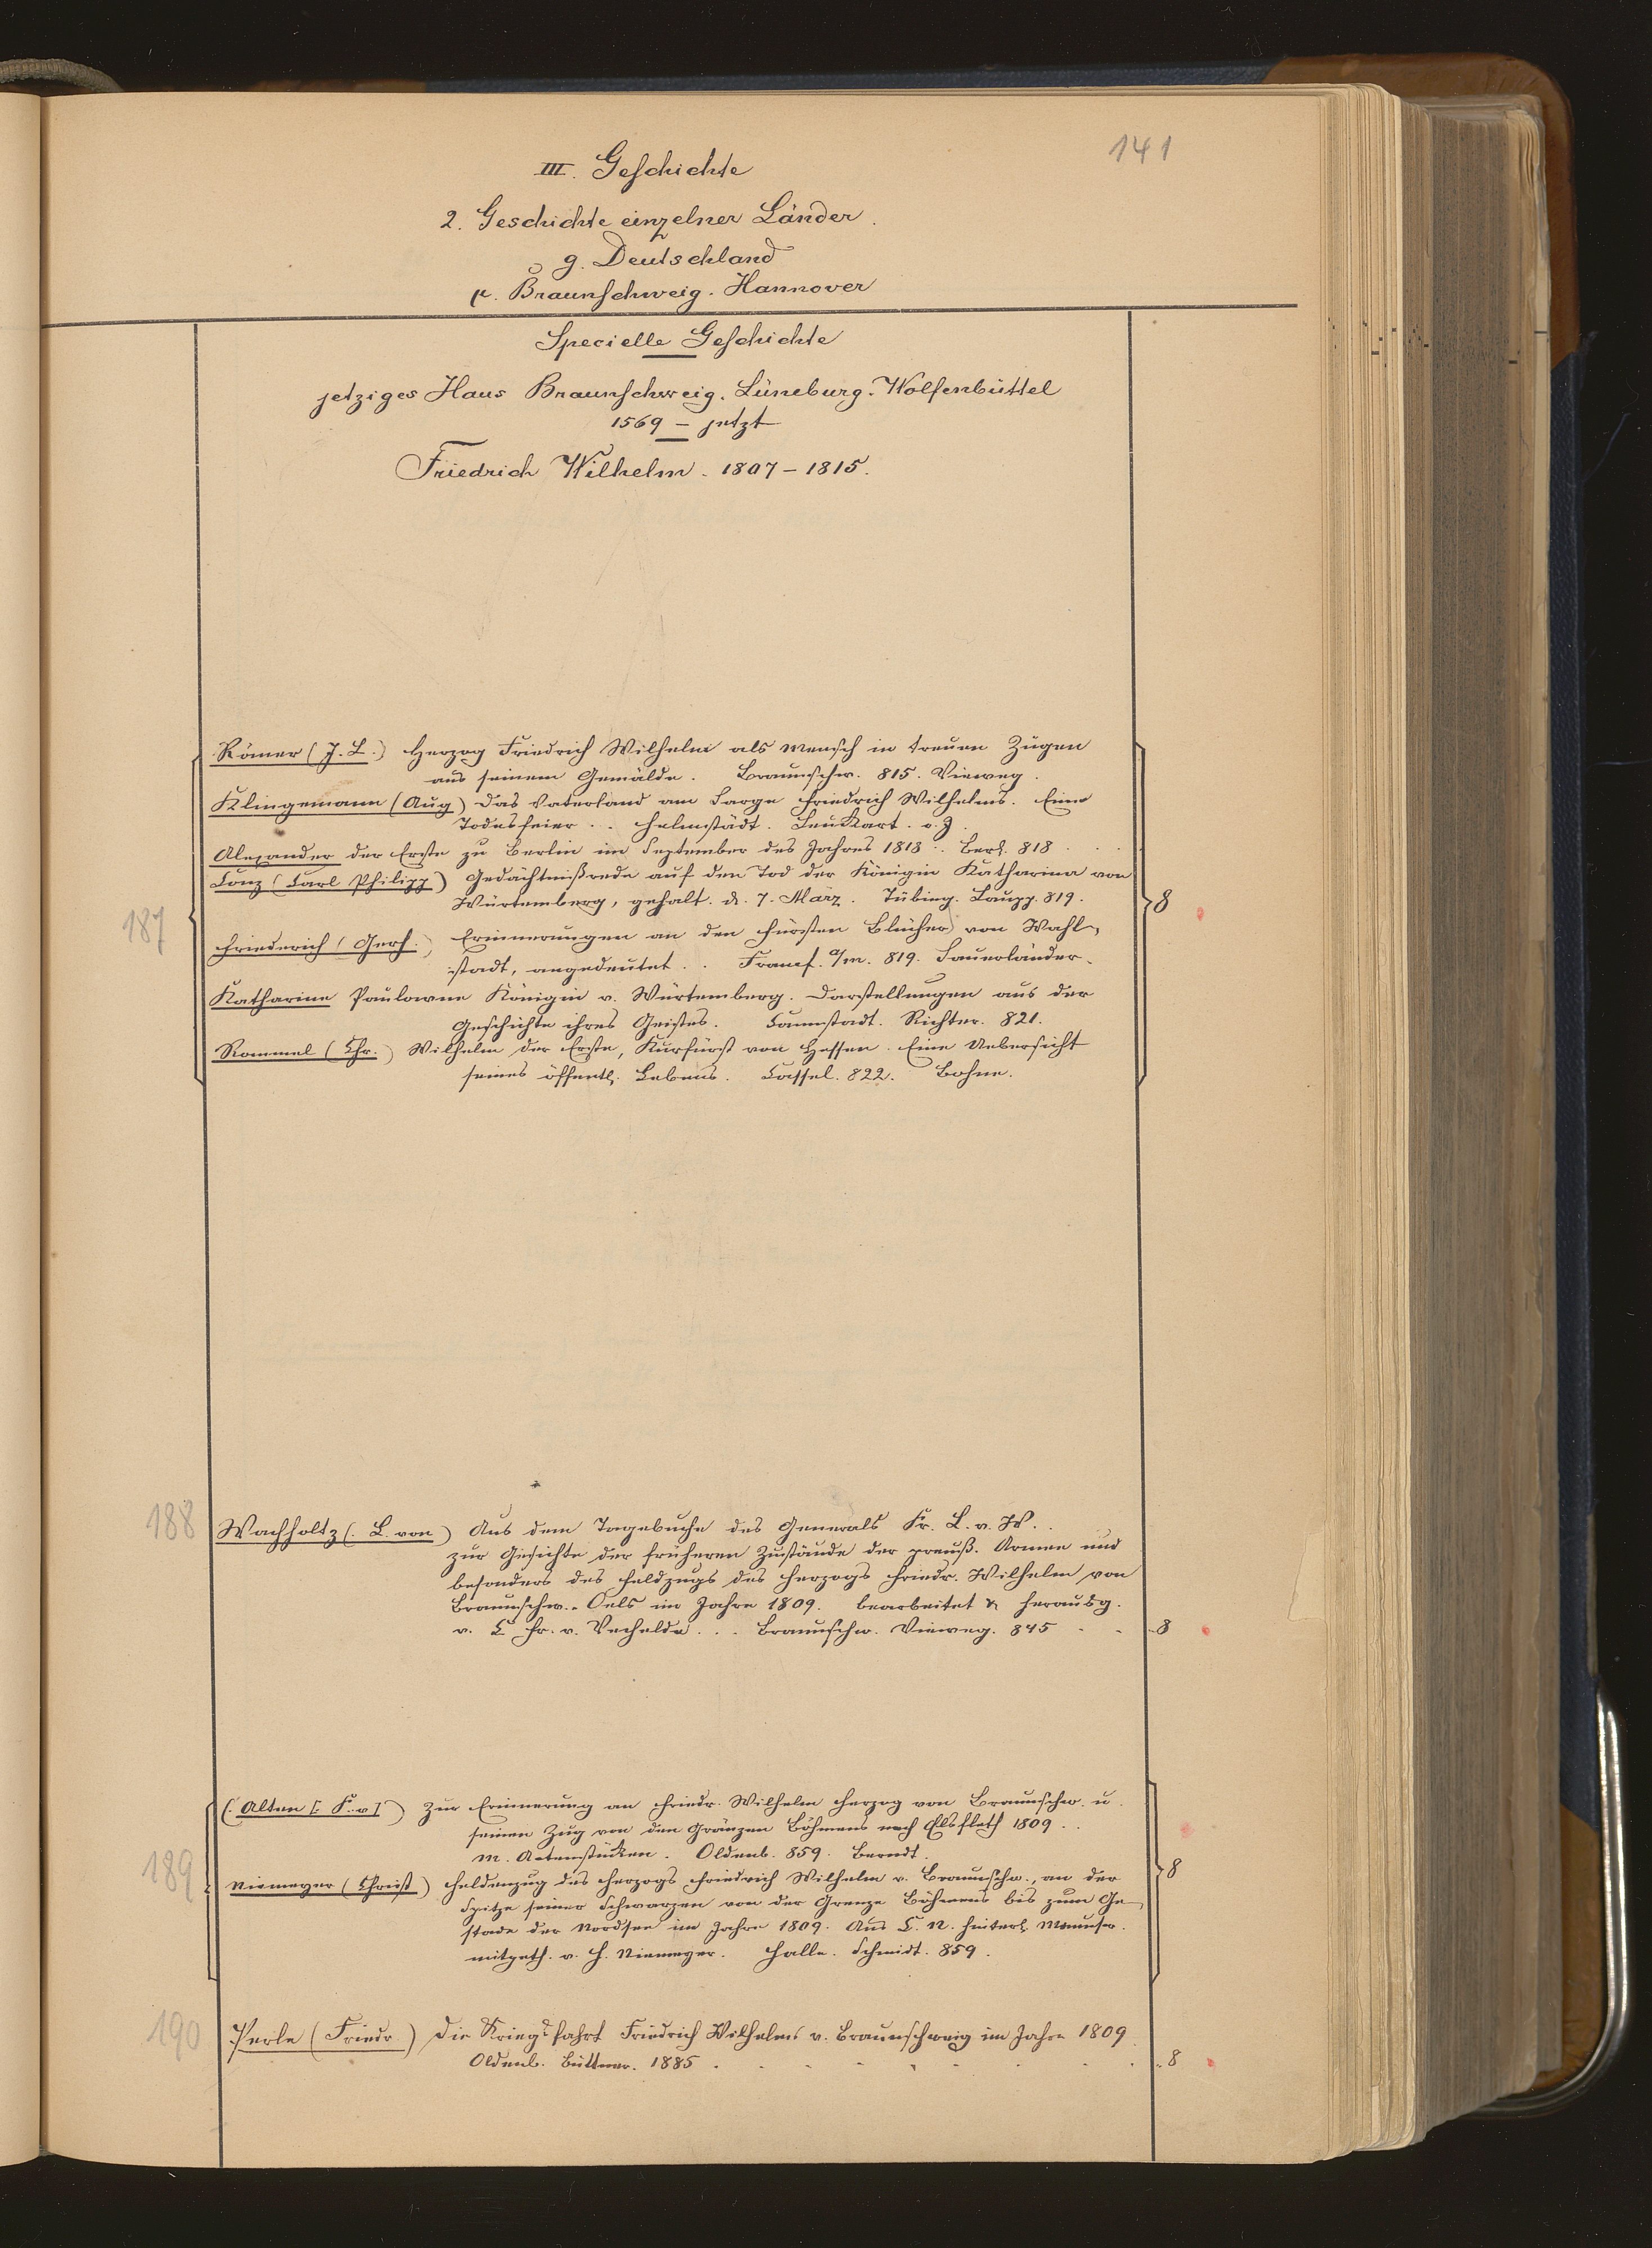 141
III. Geschichte
2. Geschichte einzelner Länder.
g. Deutschland
μ. Braunschweig. Hannover
Specielle Geschichte
jetziges Haus Braunschweig. Lüneburg. Wolfenbüttel
1569 – jetzt
Friedrich Wilhelm. 1807 – 1815.
187
Römer (J. L.) Herzog Friedrich Wilhelm als Mensch in treuen Zügen
aus seinem Gemälde. Braunschw. 815. Vieweg.
Klingemann (Aug) Das Vaterland am Sarge Friedrich Wilhelms. Eine
Todesfeier .. Helmstädt. Leuckart. o. J.
Alexander der Erste zu Berlin im September des Jahres 1818 .. Berl. 818 . . .
Conz (Carl Philipp) Gedächtnißrede auf den Tod der Königin Katharina von
Würtemberg, gehalt. d. 7. März. Tübing. Laupp. 819.
8
Friederich (Gerh.) Erinnerungen an den Fürsten Blücher von Wahl-
stadt, angedeutet .. Francf. a/m. 819. Sauerländer.
Katharine Paulowne Königin v. Würtemberg. Darstellungen aus der
Geschichte ihres Geistes. Cannstadt. Richter. 821.
Rommel (Chr.) Wilhelm der Erste, Kurfürst von Hessen. Eine Uebersicht
seines öffentl. Lebens. Cassel. 822. Bohne.
188
Wachholtz (. L. von) Aus dem Tagebuche des Generals Fr. L. v. W. .
zur Gesichte der früheren Zustände der preuß. Armee und
besonders des Feldzugs des Herzogs Friedr. Wilhelm von
Braunschw.-Oels im Jahre 1809. bearbeitet & herausg.
v. C Fr. v. Vechelde ... Braunschw. Vieweg. 845 . . 8
189
(. Alten [: F. v ]) Zur Erinnerung an Friedr. Wilhelm Herzog von Braunschw. u.
seinen Zug von den Gränzen Böhmens nach Elsfleth 1809 . .
m. Actenstücken. Oldenb. 859. Berndt.
8
Niemeyer (Christ) Heldenzug des Herzogs Friedrich Wilhelm v. Braunschw., an der
Spitze seiner Schwarzen von der Grenze Böhmens bis zum Ge-
stade der Nordsee im Jahre 1809. Aus C. N. hinterl. Manuscr.
mitgeth. v. H. Niemeyer. Halle. Schmidt. 859.
190
Perle (Friedr.) Die Kriegsfahrt Friedrich Wilhelms v. Braunschweig im Jahre 1809
Oldenb. Büttner. 1885 . . . . . . . . . 8